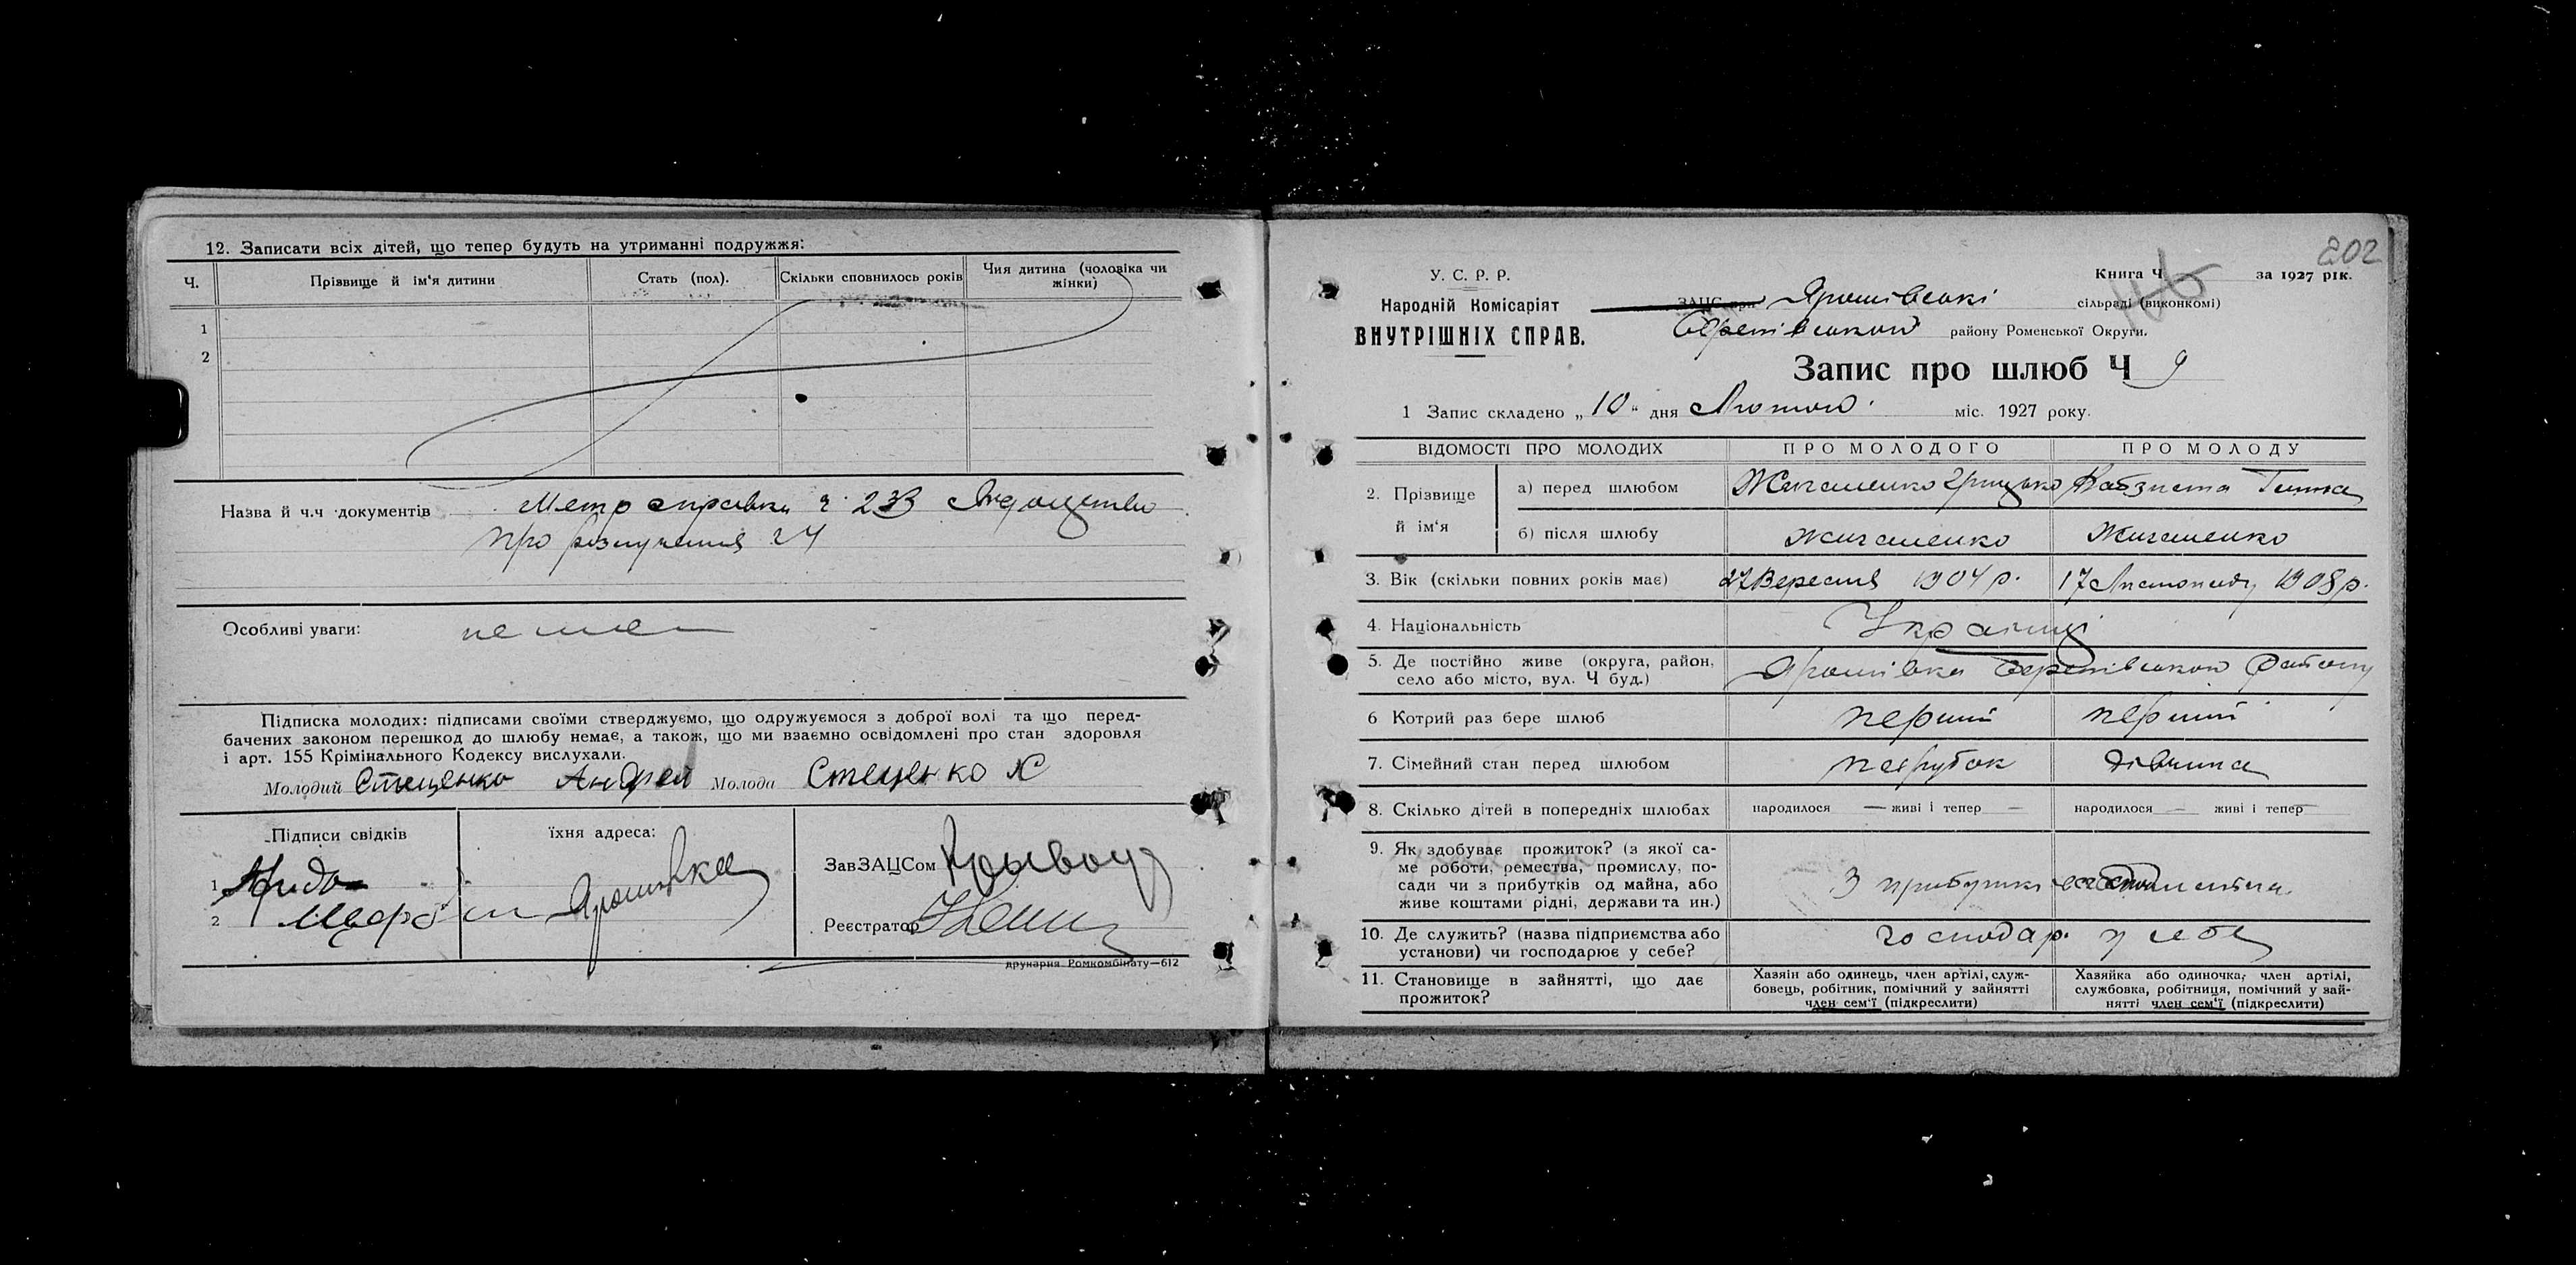 12. Записати всіх дітей, що тепер будуть на утриманні подружжя:
Ч.
Прізвище й ім'я дитини
Стать (пол).
Скільки сповнилось років
Чия дитина (чоловіка чи
жінки)
1
2
Назва й ч.ч документів Метр справки ч. 233
про 24
Особливі уваги: немає
Підписка молодих: підписами своїми стверджуємо, що одружуємося з доброї волі та що перед-
бачених законом перешкод до шлюбу немає, а також, що ми взаємно освідомлені про стан здоровля
і арт. 155 Крімінального Кодексу вислухали.
Молодий Стеценко Андрей Молода Стеценко
Підписи свідків
їхня адреса:
1
2
Ярошівка
ЗавЗАЦСом
Реєстратор
друкарня Ромкомбінату—612
202
У. С. Р. Р.
Народній Комісаріят
ВНУТРІШНІХ СПРАВ.
Книга Ч за 1927 рік.
ЗАЦС при Ярошівські сільраді (виконкомі)
району Роменської Округи.
Запис про шлюб Ч 9
1 Запис складено „10" дня Лютого міс. 1927 року.
ВІДОМОСТІ ПРО МОЛОДИХ
ПРО МОЛОДОГО
ПРО МОЛОДУ
2. Прізвище
й ім'я
а) перед шлюбом
Грицько
б) після шлюбу
3. Вік (скільки повних років має)
27 Вересня 1904 р.
17 Листопаду 1908 р.
4. Національність
Українці
5. Де постійно живе (округа, район,
село або місто, вул. Ч буд.)
Ярошівка району
6 Котрий раз бере шлюб
перший
перший
7. Сімейний стан перед шлюбом
парубок
дівчина
8. Скілько дітей в попередніх шлюбах
народилося — живі і тепер —
народилося — живі і тепер —
9. Як здобуває прожиток? (з якої са-
ме роботи, ремества, промислу, по-
сади чи з прибутків од майна, або
живе коштами рідні, держави та ин.)
З прибутків
10. Де служить? (назва підприємства або
установи) чи господарює у себе?
господар. у себе
11. Становище в зайнятті, що дає
прожиток?
Хазяін або одинець, член артілі, служ-
бовець, робітник, помічний у зайнятті
член сем'ї (підкреслити)
Хазяйка або одиночка, член артілі,
службовка, робітниця, помічний у зай-
нятті член сем'ї (підкреслити)